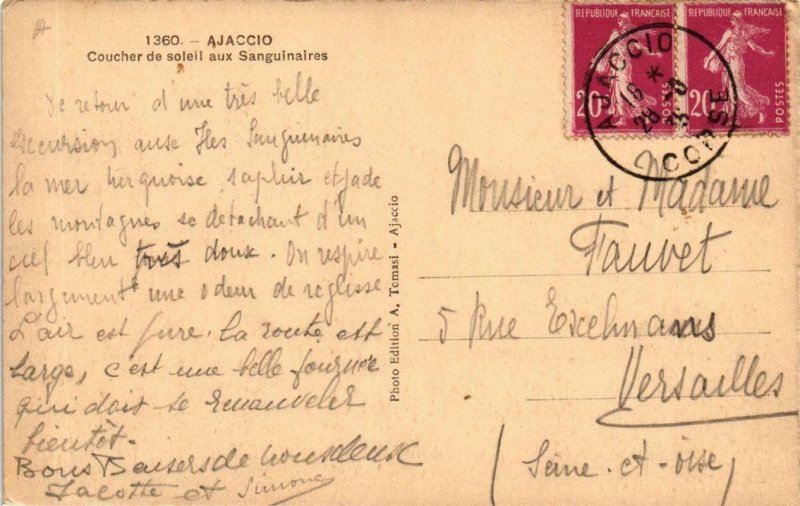 1360. - AJACCIO
Coucher de soleil aux Sanguinaires
De retour d'une très belle
excursion aux Iles Sanguinaires
la mer turquoise, saphir et jade
les montagnes se détachant d'un
ciel bleu très doux. On respire
largement une odeur de réglisse
L'air est pure. la route est
large, c'est une belle journée
qui doit se renouveler
bientôt.
Bons Baisers de nous deux
et Simone
Photo Edition A. Tomasi - Ajaccio
REPUBLIQUE FRANÇAISE
20c
POSTES
REPUBLIQUE FRANÇAISE
20c
POSTES
AJACCIO
18 *
28 - 8
35
CORSE
Monsieur et Madame
Fauvet
5 Rue Exelmans
Versailles
(Seine-et-oise)